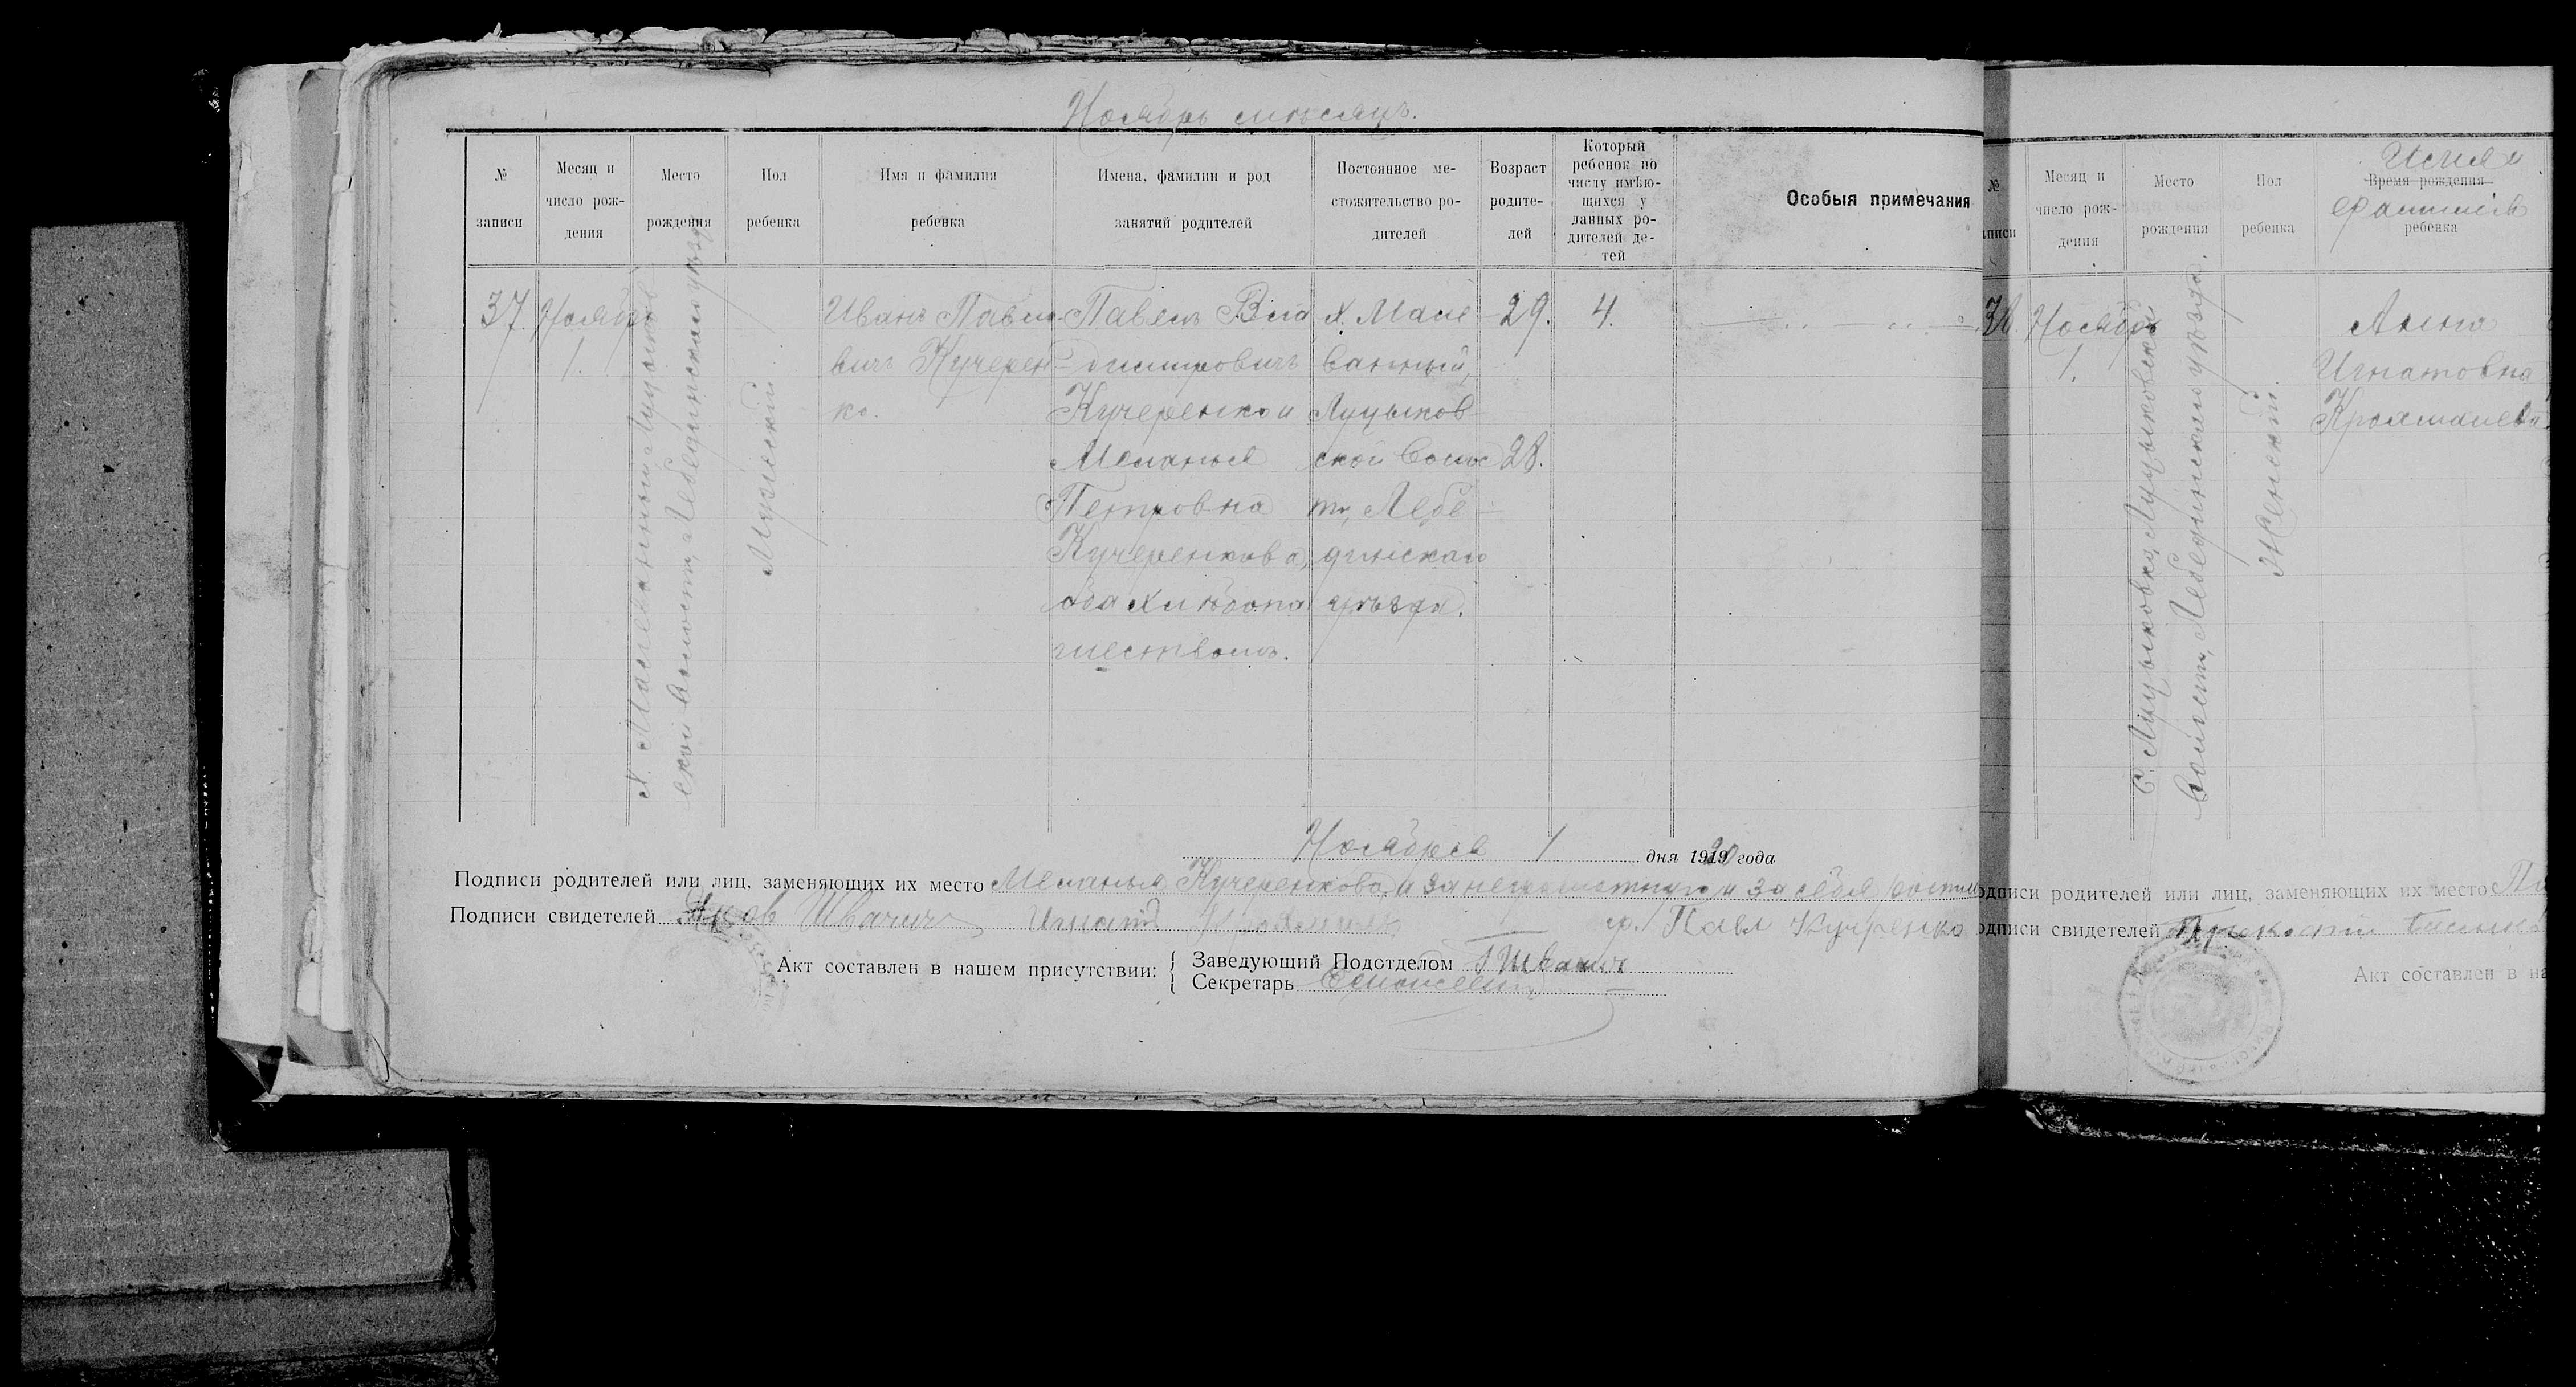 Ноябрь месяцъ.
№ записи
Месяц и число рождения
Место рождения
Пол ребенка
Имя и фамилия ребенка
Имена, фамилии и род занятий родителей
Постоянное ме-
стожительство ро-
дителей
Возраст
родите-
лей
Который
ребенок по
числу имѣю-
щихся у
данных ро-
дителей де-
тей
Особыя примечания
37.
Ноября
1.
Лебединскаго уѣзда
Мужеский
Иванъ Павло-
вичъ Кучерен-
ко.
Павелъ Вла
димировичъ
Кучеренко и
Меланья
Петровна
Кучеренкова,
оба хлѣбопа
шествомъ.
х.
ванный,
Луцыков-
ской Волос
ти, Лебе-
динскаго
уѣзда.
29.
28.
4.
Ноября 1 дня 1920 года
Подписи родителей или лиц, заменяющих их место Меланья Кучеренкова, а за неграмотную и за себя
Подписи свидетелей Яков Швачич Игнат
гр. Павл Кучренко
Акт составлен в нашем присутствии:
Заведующий Подотделом Швачич
Секретарь
№
записи
Месяц и
число рож-
дения
Место
рождения
Пол
ребенка
Имя и
Время рождения
фамилія
ребенка
38.
Ноября
1.
С. Луцыковка, Луцыковской
Волости, Лебединскаго уѣзда.
Женский.
Анна
Игнатовна
одписи родителей или лиц, заменяющих их место
одписи свидетелей
Акт составлен в на